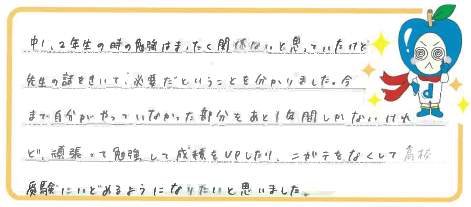 中1、2年生の時の勉強はまったく関係ないと思っていたけど
先生の話をきいて必要だということを分かりました。今
まで自分がやっていなかった部分をあと1年間しかないけれ
ど、頑張って勉強して成績をUPしたり、ニガテをなくして高校
受験にいどめるようになりたいと思いました。
d